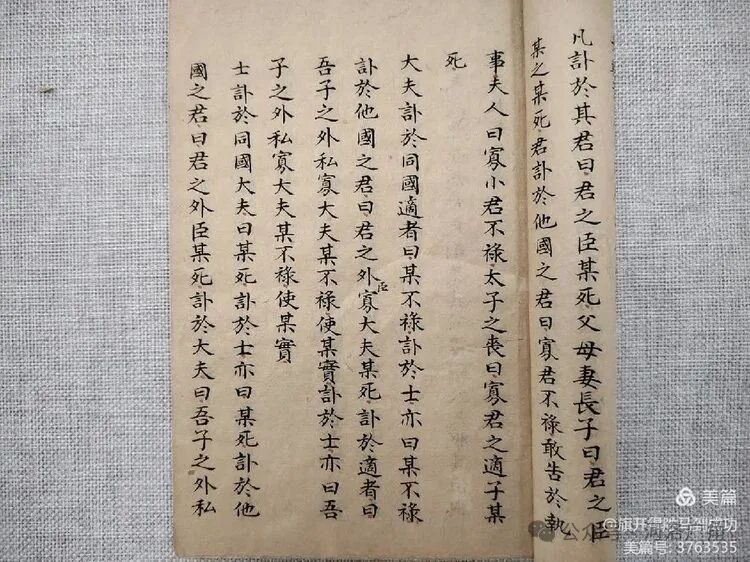 凡訃於其君曰君之臣某死父母妻長子曰君之臣
某之某死君訃於他國之君曰寡君不祿敢告於執
事夫人曰寡小君不祿太子之喪曰寡君之適子某
死
大夫訃於同國適者曰某不祿訃於士亦曰某不祿
訃於他國之君曰君之外臣寡大夫某死訃於適者曰
吾子之外私寡大夫某不祿使某實訃於士亦曰吾
子之外私寡大夫某不祿使某實
士訃於同國大夫曰某死訃於士亦曰某死訃於他
國之君曰君之外臣某死訃於大夫曰吾子之外私
美篇
@旗开得胜马到成功
公众号
美篇号: 3763535